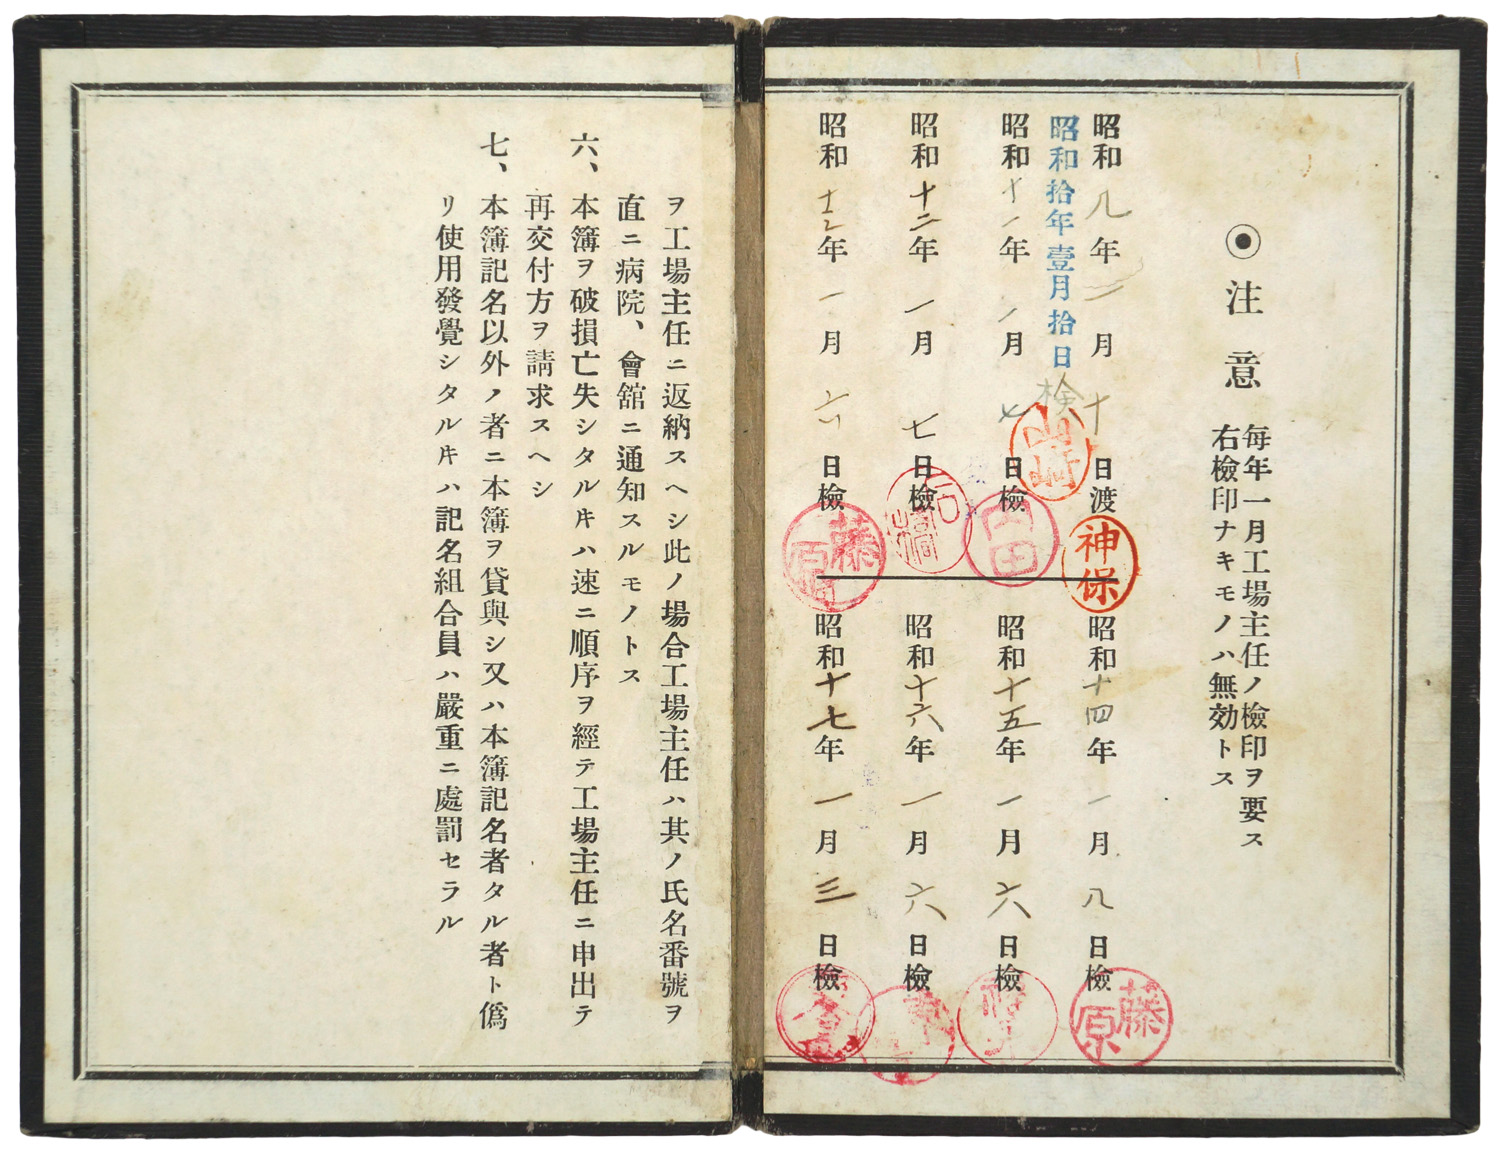 ◉注意
毎年一月工場主任ノ檢印ヲ要ス
右檢印ナキモノハ無効トス
昭和八年二月十日渡
神保
昭和拾年壹月拾日
検
山崎
昭和十一年一月七日檢
内田
昭和十二年一月七日檢
石橋
昭和十三年一月六日檢
藤原
昭和十四年一月八日檢
藤原
昭和十五年一月六日檢
昭和十六年一月六日檢
昭和十七年一月三日檢
ヲ工場主任ニ返納スヘシ此ノ場合工場主任ハ其ノ氏名番號ヲ
直ニ病院、會舘ニ通知スルモノトス
六、本簿ヲ破損亡失シタルキハ速ニ順序ヲ經テ工場主任ニ申出テ
再交付方ヲ請求スヘシ
七、本簿記名以外ノ者ニ本簿ヲ貸與シ又ハ本簿記名者タル者ト僞
リ使用發覺シタルキハ記名組合員ハ嚴重ニ處罰セラル